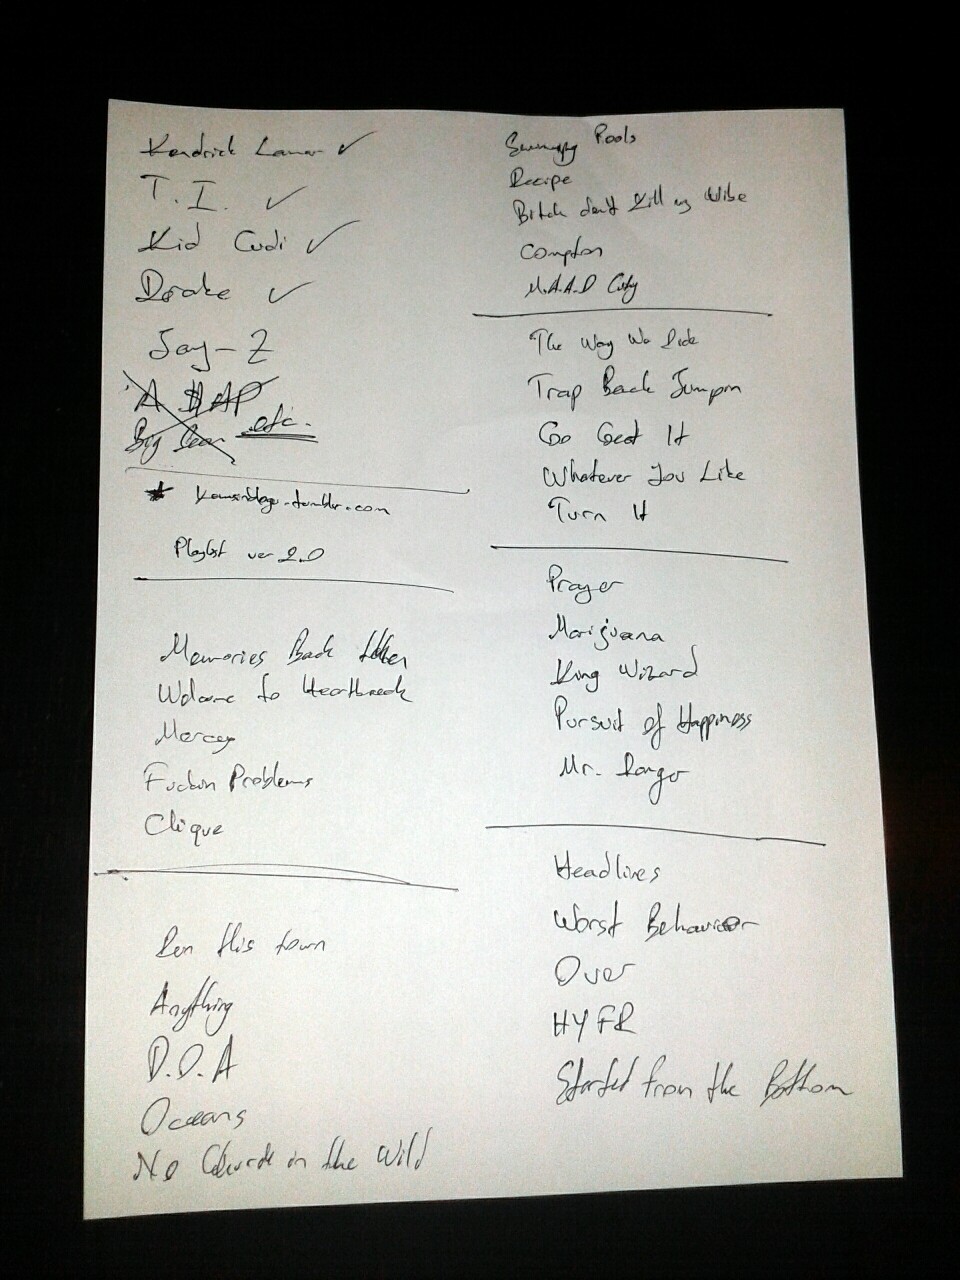 Kendrick Lamar ✓
T.I. ✓
Kid Cudi ✓
Drake ✓
Jay-Z
A $AP
Big Sean etc.
.tumblr.com
Playlist ver 2.0
Memories Back Then
Welcome to Heartbreak
Mercy
Fuckin Problems
Clique
Run this town
Anything
D.O.A
Oceans
No Church in the Wild
Pools
Recipe
Bitch don't Kill my Vibe
Compton
M.A.A.D City
The Way We Ride
Trap Back Jumpin
Go Get It
Whatever You Like
Turn It
Prayer
Marijuana
King Wizard
Pursuit of Happiness
Mr. Rager
Headlines
Worst Behavior
Over
HYFR
Started from the Bottom